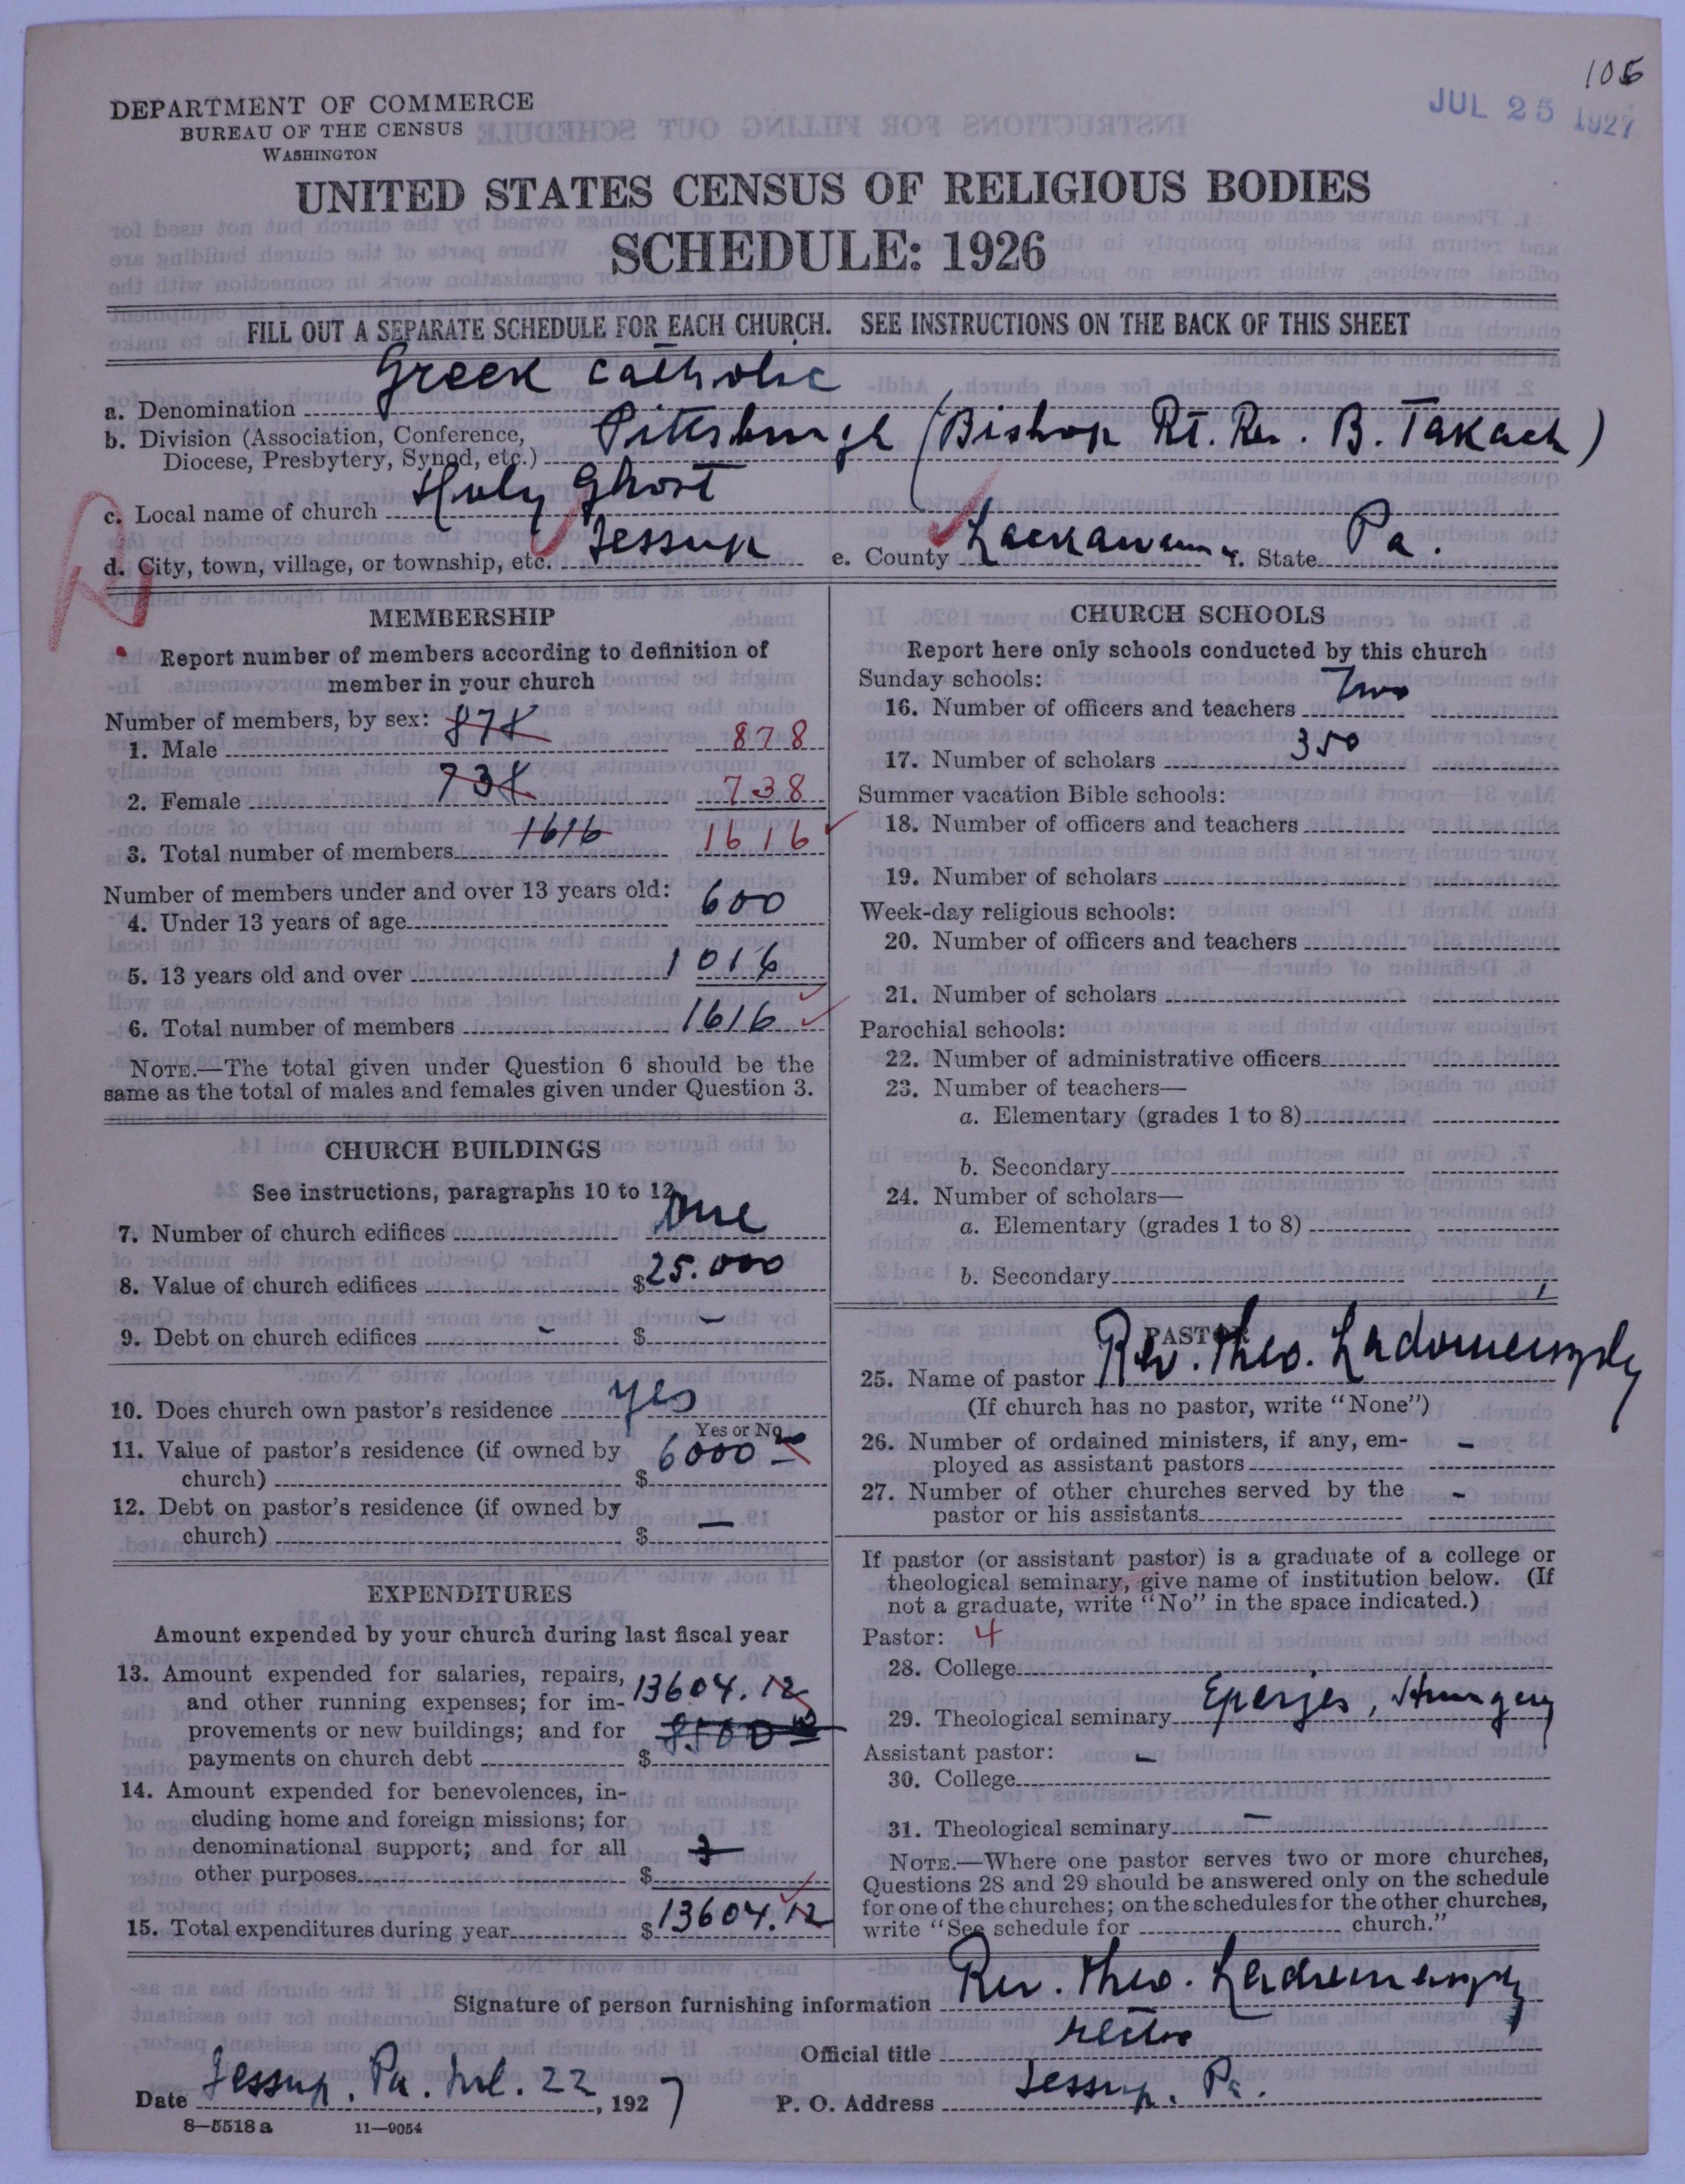 106
JUL 25 1927
DEPARTMENT OF COMMERCE
BUREAU OF THE CENSUS
WASHINGTON
UNITED STATES CENSUS OF RELIGIOUS BODIES
SCHEDULE: 1926
FILL OUT A SEPARATE SCHEDULE FOR EACH CHURCH. SEE INSTRUCTIONS ON THE BACK OF THIS SHEET
a. Denomination Greek Catholic
b. Division (Association, Conference, Diocese, Presbytery, Synod, etc.) Pittsburgh (Bishop Rt. Rev. B. Takach)
c. Local name of church Holy Ghost
d. City, town, village, or township, etc. Jessup e. County Lackawanna f. State Pa.
MEMBERSHIP
Report number of members according to definition of
member in your church
Number of members, by sex:
1. Male 878 878
2. Female 738 738
3. Total number of members 1616 1616
Number of members under and over 13 years old:
4. Under 13 years of age 600
5. 13 years old and over 1016
6. Total number of members 1616
NOTE.—The total given under Question 6 should be the
same as the total of males and females given under Question 3.
CHURCH BUILDINGS
See instructions, paragraphs 10 to 12
7. Number of church edifices One
8. Value of church edifices $25.000
9. Debt on church edifices - $ -
10. Does church own pastor's residence yes
Yes or No
11. Value of pastor's residence (if owned by
church) $ 6000
12. Debt on pastor's residence (if owned by
church) $ —
EXPENDITURES
Amount expended by your church during last fiscal year
13. Amount expended for salaries, repairs,
and other running expenses; for im-
provements or new buildings; and for
payments on church debt $ 13604.12 8500
14. Amount expended for benevolences, in-
cluding home and foreign missions; for
denominational support; and for all
other purposes $
15. Total expenditures during year $13604.12
CHURCH SCHOOLS
Report here only schools conducted by this church
Sunday schools:
16. Number of officers and teachers Two
17. Number of scholars 350
Summer vacation Bible schools:
18. Number of officers and teachers
19. Number of scholars
Week-day religious schools:
20. Number of officers and teachers
21. Number of scholars
Parochial schools:
22. Number of administrative officers
23. Number of teachers—
a. Elementary (grades 1 to 8)
b. Secondary
24. Number of scholars—
a. Elementary (grades 1 to 8)
b. Secondary
PASTOR
25. Name of pastor Rev. Theo. Ladomerszky
(If church has no pastor, write "None")
26. Number of ordained ministers, if any, em-
ployed as assistant pastors -
27. Number of other churches served by the
pastor or his assistants -
If pastor (or assistant pastor) is a graduate of a college or
theological seminary, give name of institution below. (If
not a graduate, write "No" in the space indicated.)
Pastor: 4
28. College
29. Theological seminary Eperjes, Hungary
Assistant pastor: -
30. College
31. Theological seminary -
NOTE.—Where one pastor serves two or more churches,
Questions 28 and 29 should be answered only on the schedule
for one of the churches; on the schedules for the other churches,
write "See schedule for church."
Signature of person furnishing information Rev. Theo. Ladomerszky
Official title rector
Date Jessup. Pa. Jul. 22, 1927 P. O. Address Jessup. Pa.
8—5518a 11—9054